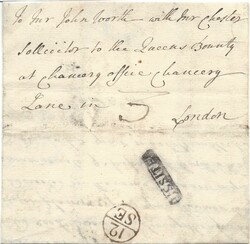 To Mr John Worth with Mr Chester
Sollicitor to the Queens Bounty
at Chancery office Chancery
Lane in
London
12
SE